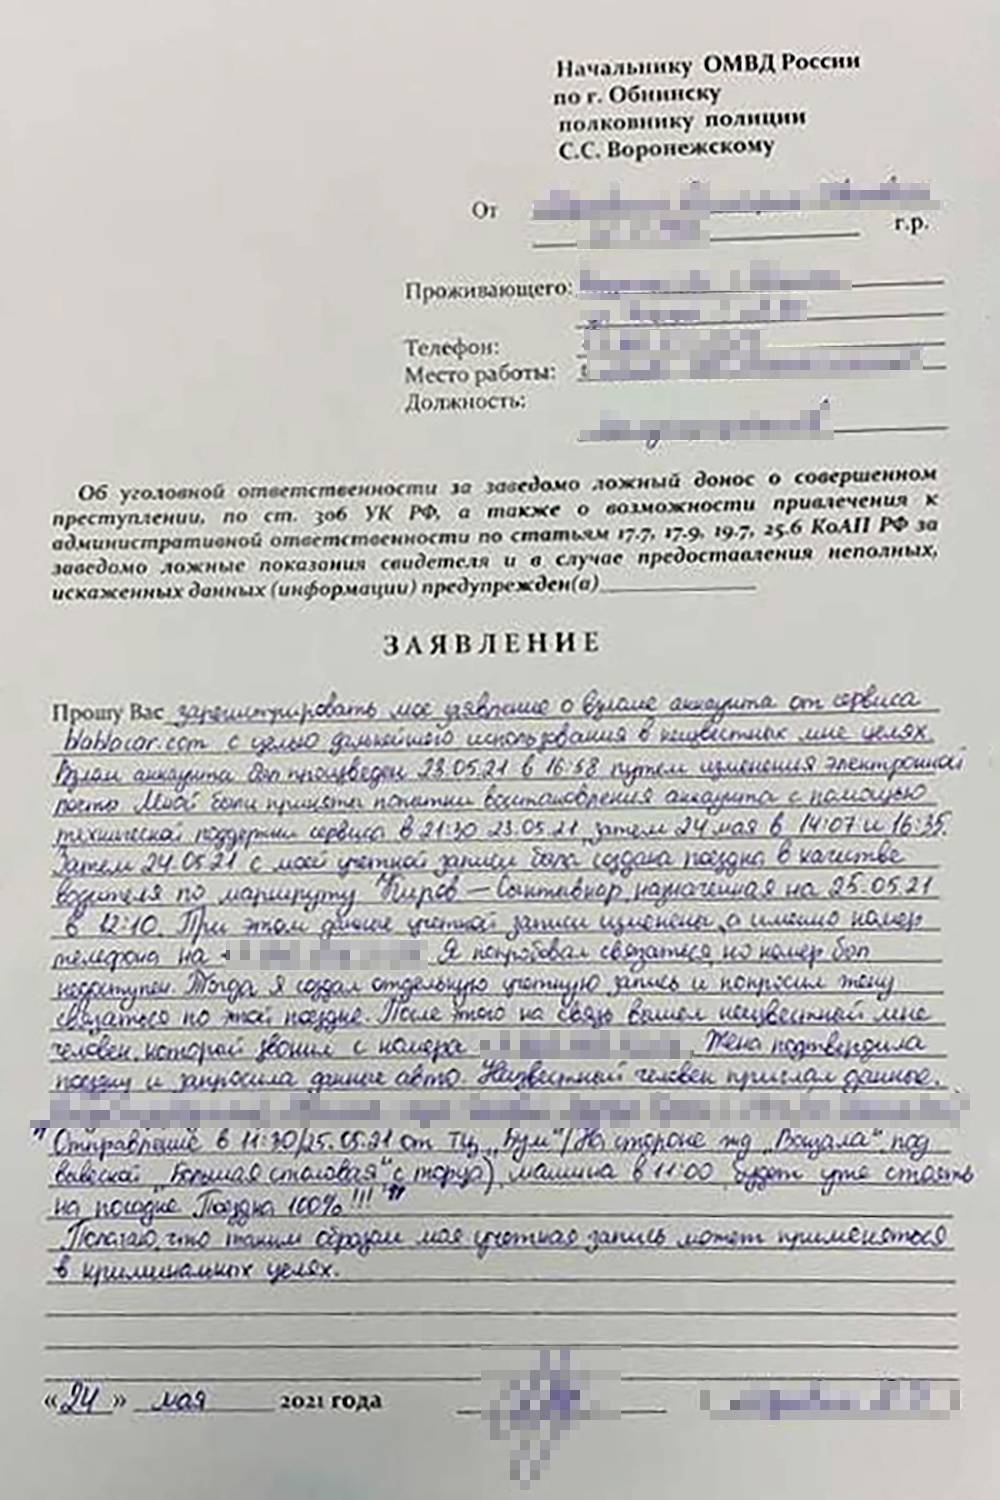 Начальнику ОМВД России
по г. Обнинску
полковнику полиции
С.С. Воронежскому
От
г.р.
Проживающего:
Телефон:
Место работы:
Должность:
Об уголовной ответственности за заведомо ложный донос о совершенном
преступлении, по ст. 306 УК РФ, а также о возможности привлечения к
административной ответственности по статьям 17.7, 17.9, 19.7, 25.6 КоАП РФ за
заведомо ложные показания свидетеля и в случае предоставления неполных,
искаженных данных (информации) предупрежден(а)
ЗАЯВЛЕНИЕ
Прошу Вас зарегистрировать мое заявление о взломе аккаунта от сервиса
blablacar.com с целью дальнейшего использования в неизвестных мне целях.
Взлом аккаунта был произведен 23.05.21 в 16:58 путем изменения электронной
почты. Мной были приняты попытки восстановления аккаунта с помощью
технической поддержки сервиса в 21:30 23.05.21, затем 24 мая в 14:07 и 16:35.
Затем 24.05.21 с моей учетной записи была создана поездка в качестве
водителя по маршруту Киров – Сыктывкар, назначенная на 25.05.21
в 12:10. При этом данные учетной записи изменены, а именно номер
телефона на + Я попробовал связаться, но номер был
недоступен. Тогда я создал отдельную учетную запись и попросил жену
связаться по этой поездке. После этого на связь вышел неизвестный мне
человек, который звонил с номера Жена подтвердила
поездку и запросила данные авто. Неизвестный человек прислал данные.
"Отправление в 11:30/25.05.21 от ТЦ „Бум"/На стороне жд „Вокзала" под
вывеской „Большая столовая" с торца), машина в 11:00 будет уже стоять
на посадке Поездка 100%!!!"
Полагаю, что таким образом моя учетная запись может применяться
в криминальных целях.
«24» мая 2021 года